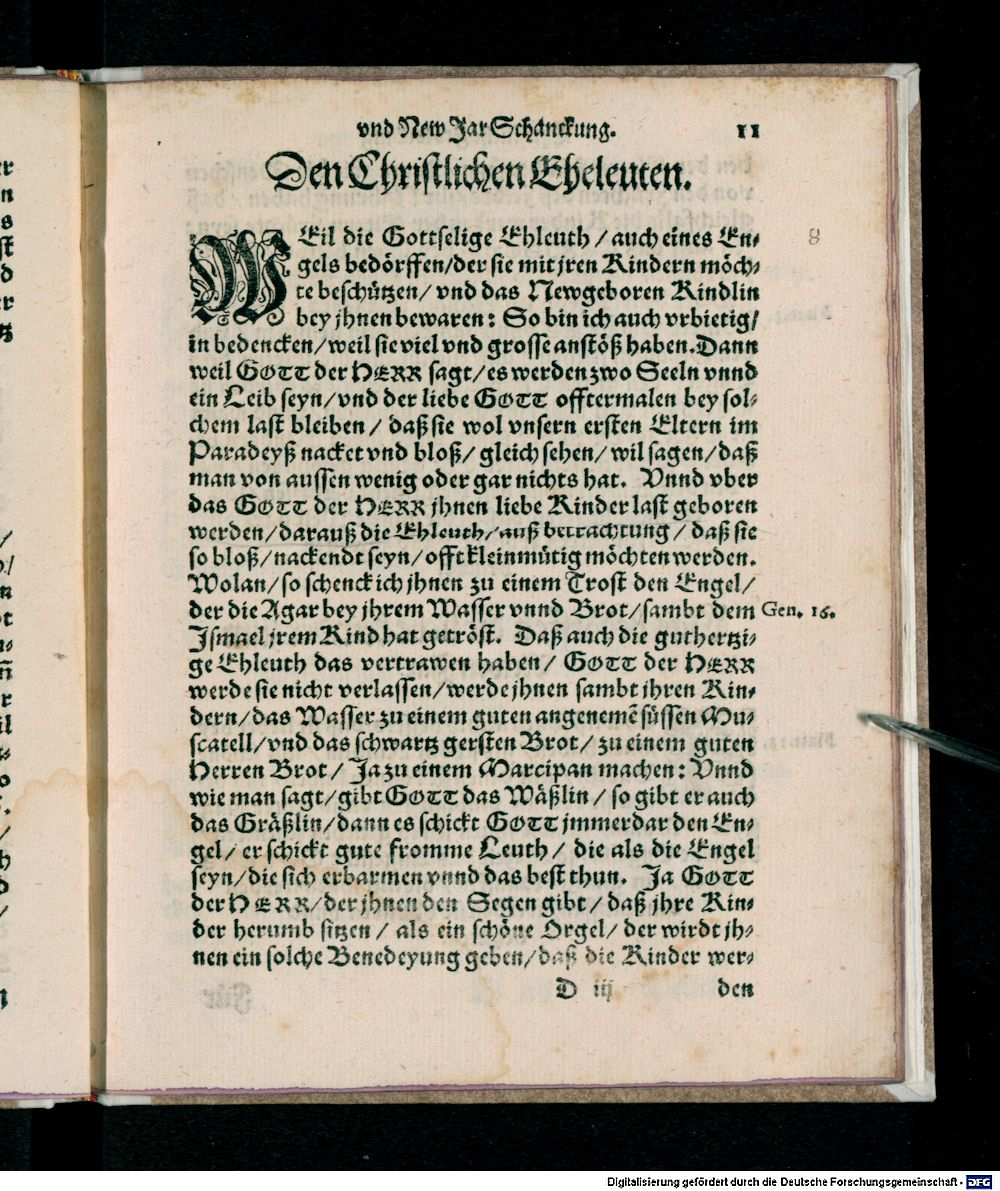 vnd New Jar Schänckung. 11
Den Christlichen Eheleuten.
WEil die Gottselige Ehleuth / auch eines En⸗
gels bedörffen/der sie mit jren Kindern möch⸗
te beschützen/ vnd das Newgeboren Kindlin
bey jhnen bewaren: So bin ich auch vrbietig/
in bedencken/weil sie viel vnd grosse anstöß haben. Dann
weil GOTT der HERR sagt/es werden zwo Seeln vnnd
ein Leib seyn/vnd der liebe GOTT offtermalen bey sol⸗
chem last bleiben / daß sie wol vnsern ersten Eltern im
Paradeyß nacket vnd bloß/ gleich sehen/ wil sagen/daß
man von aussen wenig oder gar nichts hat. Vnnd vber
das GOTT der HERR jhnen liebe Kinder last geboren
werden/darauß die Ehleuth/auß betrachtung / daß sie
so bloß/nackendt seyn/offt kleinmütig möchten werden.
Wolan/so schenck ich jhnen zu einem Trost den Engel/
der die Agar bey jhrem Wasser vnnd Brot/sambt dem Gen. 16.
Jsmael jrem Kind hat getröst. Daß auch die guthertzi⸗
ge Ehleuth das vertrawen haben/ GOTT der HERR
werde sie nicht verlassen/werde jhnen sambt jhren Kin⸗
dern/das Wasser zu einem guten angenemẽ süssen Mu⸗
scatell/vnd das schwartz gersten Brot/zu einem guten
Herren Brot/ Ja zu einem Marcipan machen: Vnnd
wie man sagt/gibt GOTT das Wäßlin / so gibt er auch
das Gräßlin/dann es schickt GOTT jmmerdar den En⸗
gel/ er schickt gute fromme Leuth/ die als die Engel
seyn/die sich erbarmen vnnd das best thun. Ja GOTT
der HERR/der jhnen den Segen gibt/ daß jhre Kin⸗
der herumb sitzen/ als ein schöne Orgel/ der wirdt jh⸗
nen ein solche Benedeyung geben/daß die Kinder wer⸗
D iij den
8
Digitalisierung gefördert durch die Deutsche Forschungsgemeinschaft - DFG